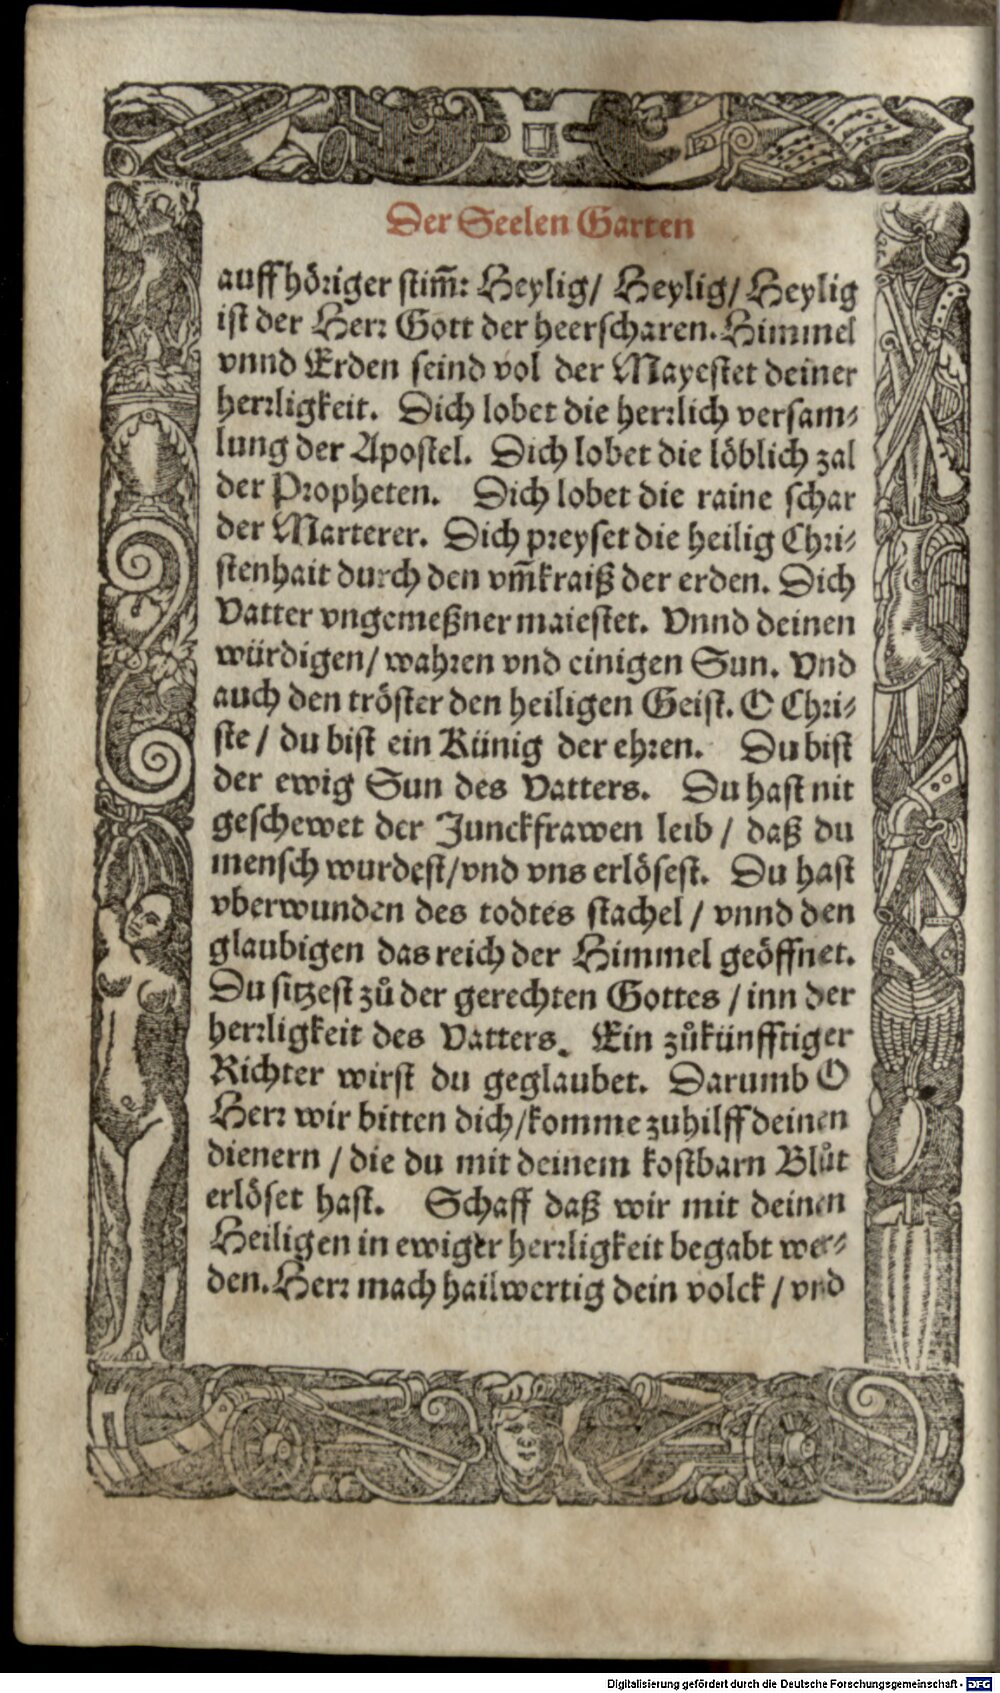 Der Seelen Garten
auffhöriger stim̃: Heylig/ Heylig/ Heylig
ist der Herr Gott der heerscharen. Himmel
vnnd Erden seind vol der Mayestet deiner
herrligkeit. Dich lobet die herrlich versam⸗
lung der Apostel. Dich lobet die löblich zal
der Propheten. Dich lobet die raine schar
der Marterer. Dich preyset die heilig Chri⸗
stenhait durch den vm̃kraiß der erden. Dich
Vatter vngemeßner maiestet. Vnnd deinen
würdigen/ wahren vnd einigen Sun. Vnd
auch den tröster den heiligen Geist. O Chri⸗
ste / du bist ein Künig der ehren. Du bist
der ewig Sun des Vatters. Du hast nit
geschewet der Junckfrawen leib / daß du
mensch wurdest/ vnd vns erlösest. Du hast
vberwunden des todtes stachel / vnnd den
glaubigen das reich der Himmel geöffnet.
Du sitzest zů der gerechten Gottes / inn der
herrligkeit des Vatters. Ein zůkünfftiger
Richter wirst du geglaubet. Darumb O
Herr wir bitten dich/ komme zuhilff deinen
dienern / die du mit deinem kostbarn Blůt
erlöset hast. Schaff daß wir mit deinen
Heiligen in ewiger herrligkeit begabt wer⸗
den. Herr mach hailwertig dein volck / vnd
Digitalisierung gefördert durch die Deutsche Forschungsgemeinschaft - DFG